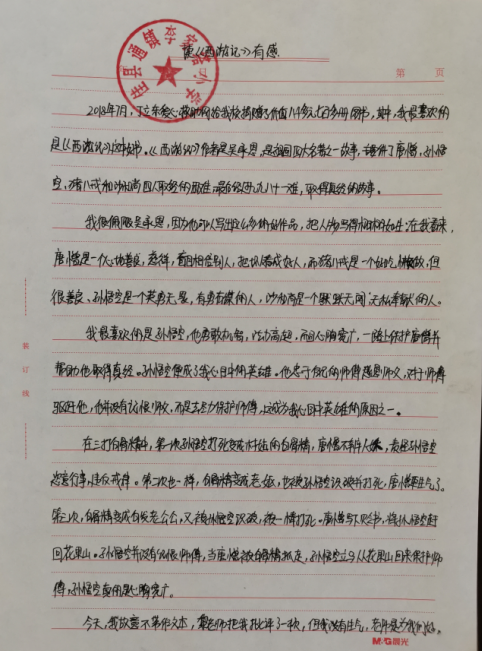 读《西游记》有感
佳县通镇李家
小学
第 页
2018年7月,
给我校捐赠了价值
图书,其中,我最喜欢的
是《西游记》这本书。《西游记》作者是吴承恩,是我国四大名著之一故事,主要件了唐僧、孙悟
空、猪八戒和沙和尚四人取经的困难,最后经过九九八十一难,取得真经的故事。
我很佩服吴承恩,因为他可以写出这么多的好作品,把人物写得栩栩如生,在我看来,
唐僧是一位心地善良,慈祥,盲目相信别人,把妖怪当成好人,而猪八戒是一个
但
很善良、孙悟空是一个英勇无畏,有勇有谋的人,沙和尚是一个默默无闻、无私奉献的人。
我最喜欢的是孙悟空,他勇敢机智,武功高超,而且心胸宽广,一路上保护唐僧并
帮助他取得真经。孙悟空便成了我心目中的英雄。他忠于自己的师傅
对于师傅
他,他并没有记恨师父,而是去尽力保护师傅,这成为我心目中英雄的原因之一。
在三打白骨精中,第一次孙悟空打死变成村姑的白骨精,唐僧不
孙悟空
恣意行事,违反戒律。第二次也一样,白骨精变成老
,也被孙悟空识破并打死,唐僧更生气了。
第三次,白骨精变成白发老公公,又被孙悟空识破,被一棒打死。唐僧写下贬书,将孙悟空赶
回花果山。孙悟空并没有记恨师傅,当唐僧被白骨精抓走,孙悟空立马从花果山回来保护师
傅,孙悟空真的是心胸宽广。
今天,我故意不带作文本,
老师把我批评了一顿,但我没有生气,老师是为我们好。
装订线
M&G晨光